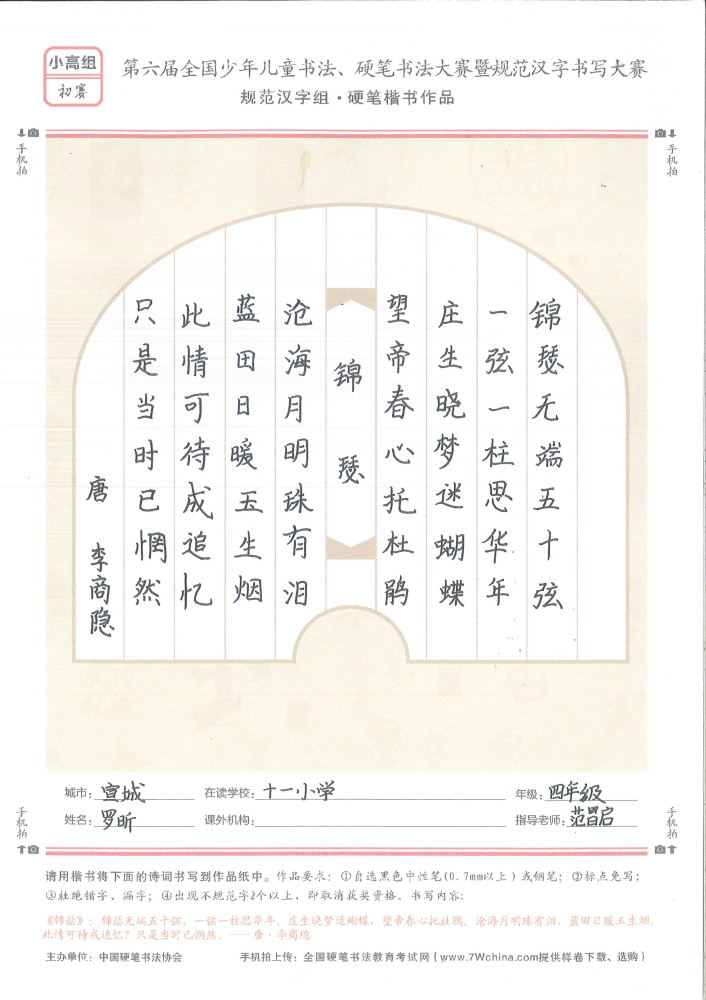 小高组
初赛
第六届全国少年儿童书法、硬笔书法大赛暨规范汉字书写大赛
规范汉字组·硬笔楷书作品
手机拍
手机拍
锦瑟无端五十弦
一弦一柱思华年
庄生晓梦迷蝴蝶
望帝春心托杜鹃
锦瑟
沧海月明珠有泪
蓝田日暖玉生烟
此情可待成追忆
只是当时已惘然
唐 李商隐
城市：宣城 在读学校：十一小学 年级：四年级
姓名：罗昕 课外机构： 指导老师：范昌启
手机拍
手机拍
请用楷书将下面的诗词书写到作品纸中。作品要求：①自选黑色中性笔(0.7mm以上)或钢笔；②标点免写；
③杜绝错字、漏字；④出现不规范字2个以上，即取消获奖资格。书写内容：
《锦瑟》：锦瑟无端五十弦，一弦一柱思华年。庄生晓梦迷蝴蝶，望帝春心托杜鹃。沧海月明珠有泪，蓝田日暖玉生烟。
此情可待成追忆？只是当时已惘然。——唐·李商隐
主办单位：中国硬笔书法协会 手机拍上传：全国硬笔书法教育考试网（www.7Wchina.com提供样卷下载、选购）